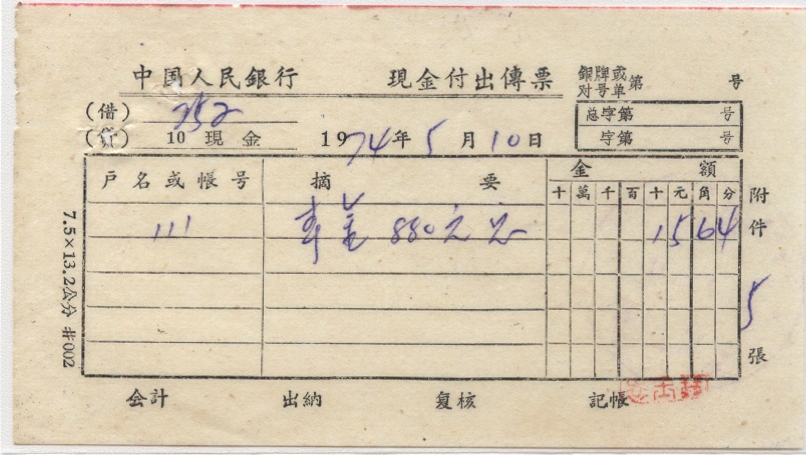 中国人民銀行 現金付出傳票 銅牌或对号单第 号
(借) 252 总字第 号
(貸) 10 現金 1974年5月10日 字第 号
戶名或帳号 摘要 金額
十 萬 千 百 十 元 角 分
111 880元 15 6 4
附件 5 張
7.5×13.2公分 #002
会計 出納 复核 記帳